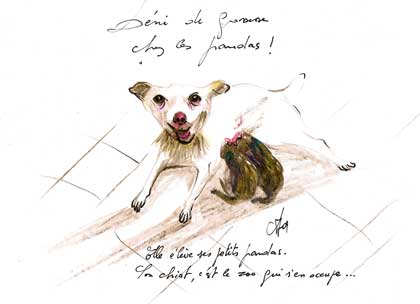 Déni de grossesse
chez les pandas !
Elle élève ses petits pandas.
Son chiot, c'est le zoo qui s'en occupe ...